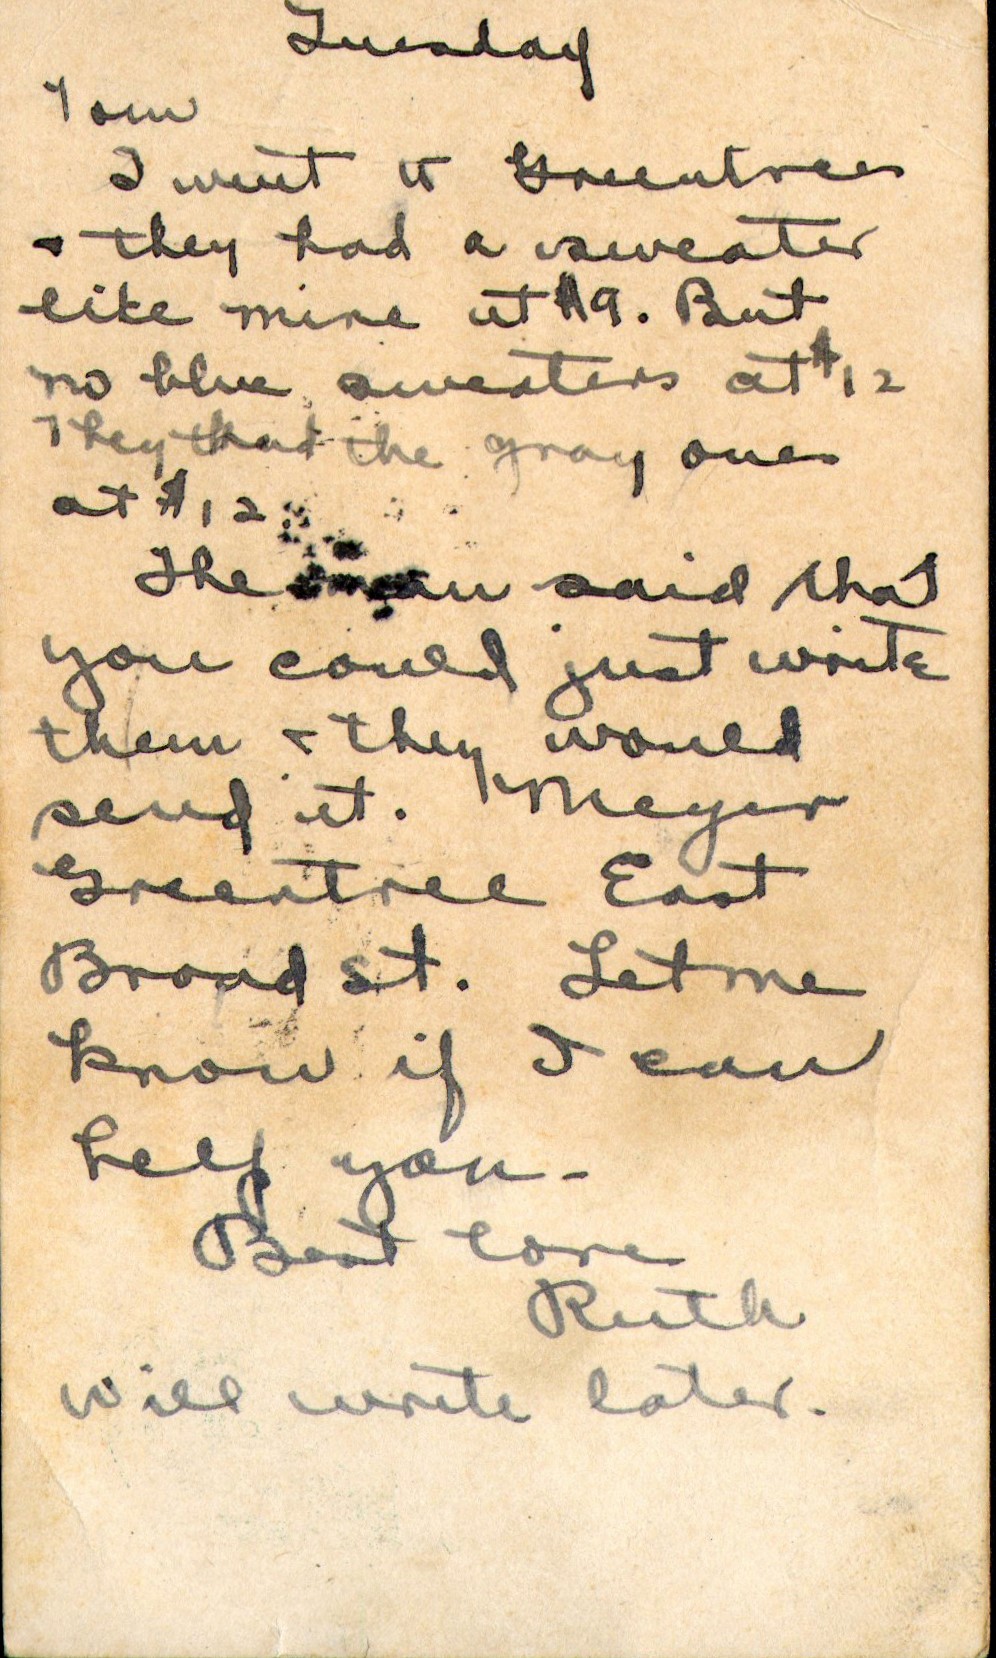 Tuesday
Tom
I went to Greentrees
& they had a sweater
like mine at $9. But
no blue sweaters at $12
They had the gray ones
at $12.
The man said that
you could just write
them & they would
send it. Meyer
Greentree East
Broad st. Let me
know if I can
help you -
Best love
Ruth
Will write later.